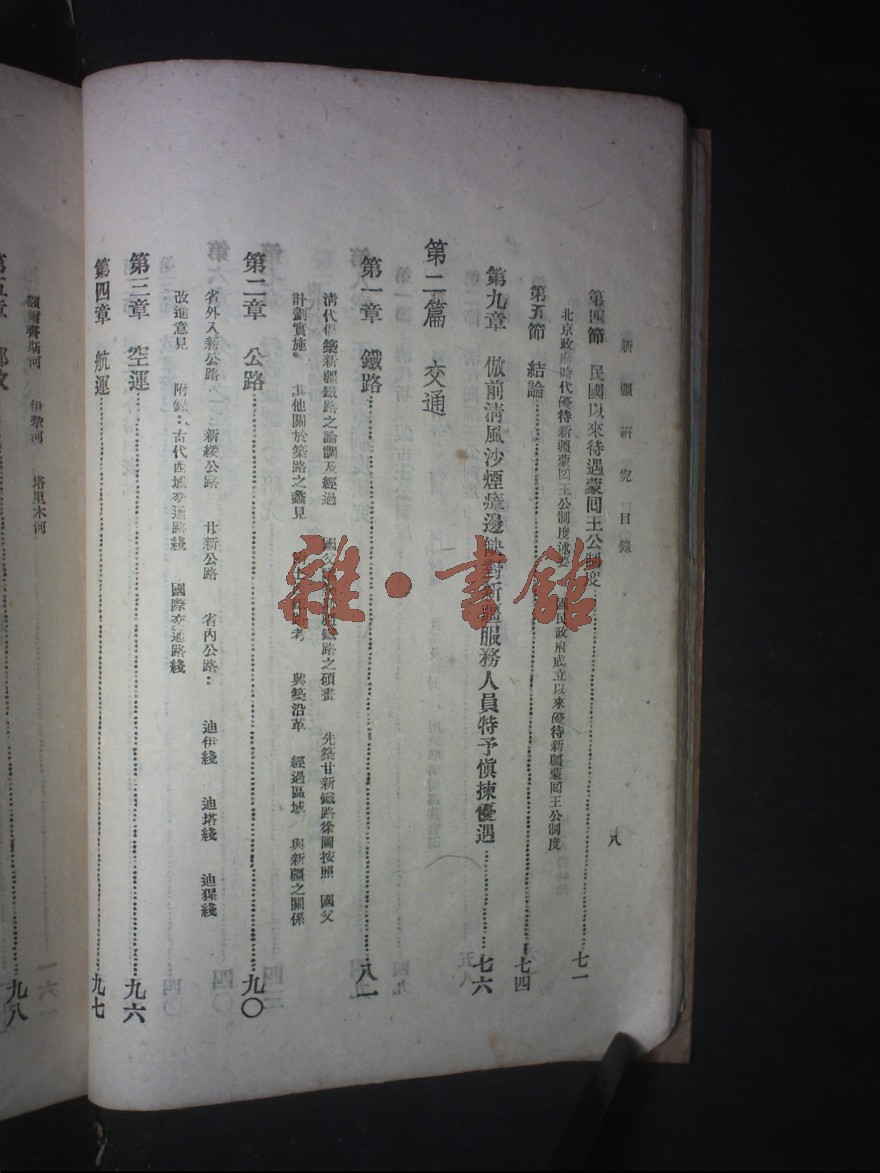 新疆研究目錄
八
第四節 民國以來待遇蒙回王公制度……七一
北京政府時代優待新疆蒙回王公制度述要 國民政府成立以來優待新疆蒙回王公制度
第五節 結論……七四
第九章 倣前清風沙煙瘴邊缺對新疆服務人員特予愼揀優遇……七六
第二篇 交通
第一章 鐵路……八一
清代倡築新疆鐵路之論調及經過 國父 鐵路之碩畫 先築甘新鐵路徐圖按照 國父
計劃實施 其他關於築路之蠡見 考 興築沿革 經過區域 與新疆之關係
第二章 公路……九〇
省外入新公路 新綏公路 甘新公路 省內公路： 迪伊綫 迪塔綫 迪猩綫
改進意見 附錄：古代西域交通路綫 國際交通路綫
第三章 空運……九六
第四章 航運……九七
額爾齊斯河 伊犂河 塔里木河
第五章 郵政……九八
雜·書館